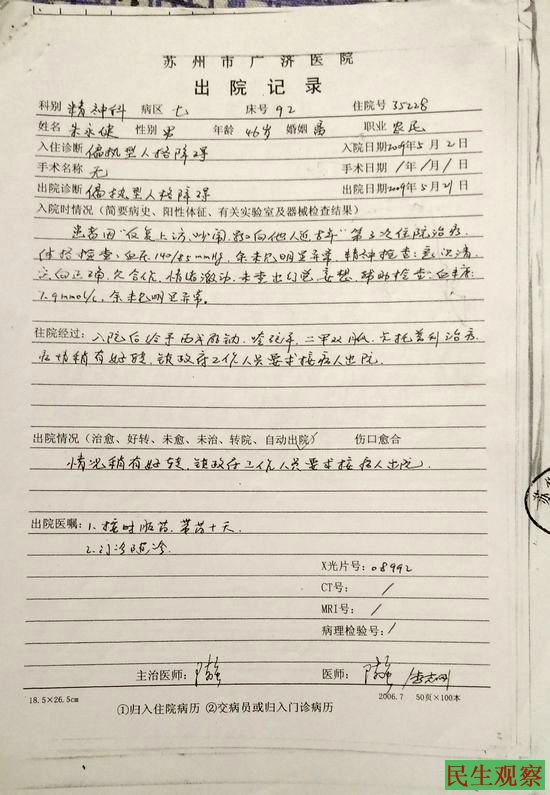 苏州市广济医院
出院记录
科别 精神科 病区 七 床号 92 住院号 35228
姓名 朱永健 性别 男 年龄 46岁 婚姻 职业 农民
入住诊断 偏执型人格障碍 入院日期2009年5月2日
手术名称 无 手术日期 / 年 / 月 / 日
出院诊断 偏执型人格障碍 出院日期2009年5月21日
入院时情况（简要病史、阳性体征、有关实验室及器械检查结果）
患者因“反复上访,吵闹, 向他人 ”第3次住院治疗.
体格检查:血压140/85mmHg,余未见明显异常,精神检查:意识清,
定向正确,欠合作,情绪激动,未查出幻觉妄想,辅助检查:血
7.9mmol/L,余未见明显异常.
住院经过: 入院后给予 二甲双胍,卡托普利治疗,
病情稍有好转,镇政府工作人员要求接病人出院.
出院情况（治愈、好转、未愈、未治、转院、自动出院） 伤口愈合
情况稍有好转,镇政府工作人员要求接病人出院.
出院医嘱: 1.按时服药,带药十天.
2.门诊随诊.
X光片号: 08992
CT号: /
MRI号: /
病理检验号: /
主治医师: 医师:
18.5×26.5cm 2006.7 50页×100本
①归入住院病历 ②交病员或归入门诊病历
民生观察